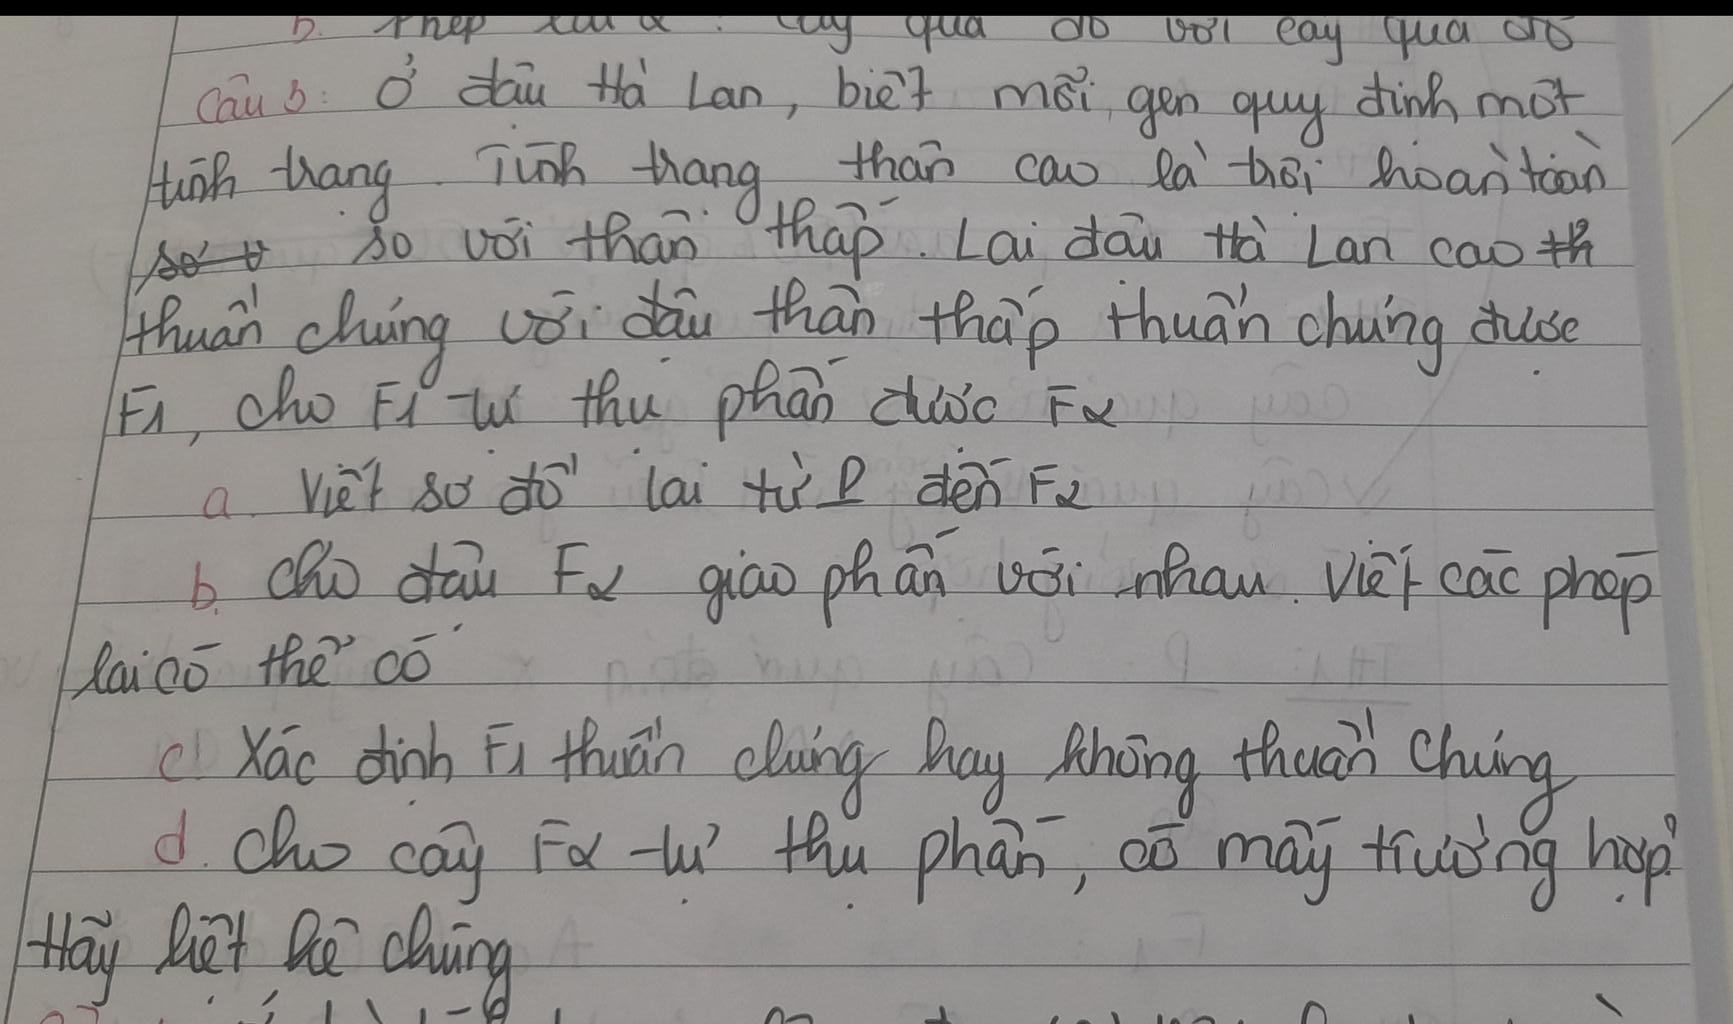 b. Phép lai 2: Cây quả đỏ với cây quả đỏ
Câu 3: Ở đậu Hà Lan, biết mỗi gen quy định một
tính trạng. Tính trạng thân cao là trội hoàn toàn
so v so với thân thấp. Lai đậu Hà Lan cao th
thuần chủng với đậu thân thấp thuần chủng được
F1, cho F1 tự thụ phấn được F2
a. Viết sơ đồ lai từ P đến F2
b. Cho đậu F2 giao phấn với nhau. Viết các phép
lai có thể có
c. Xác định F1 thuần chủng hay không thuần chủng
d. Cho cây F2 tự thụ phấn, có mấy trường hợp?
Hãy liệt kê chúng